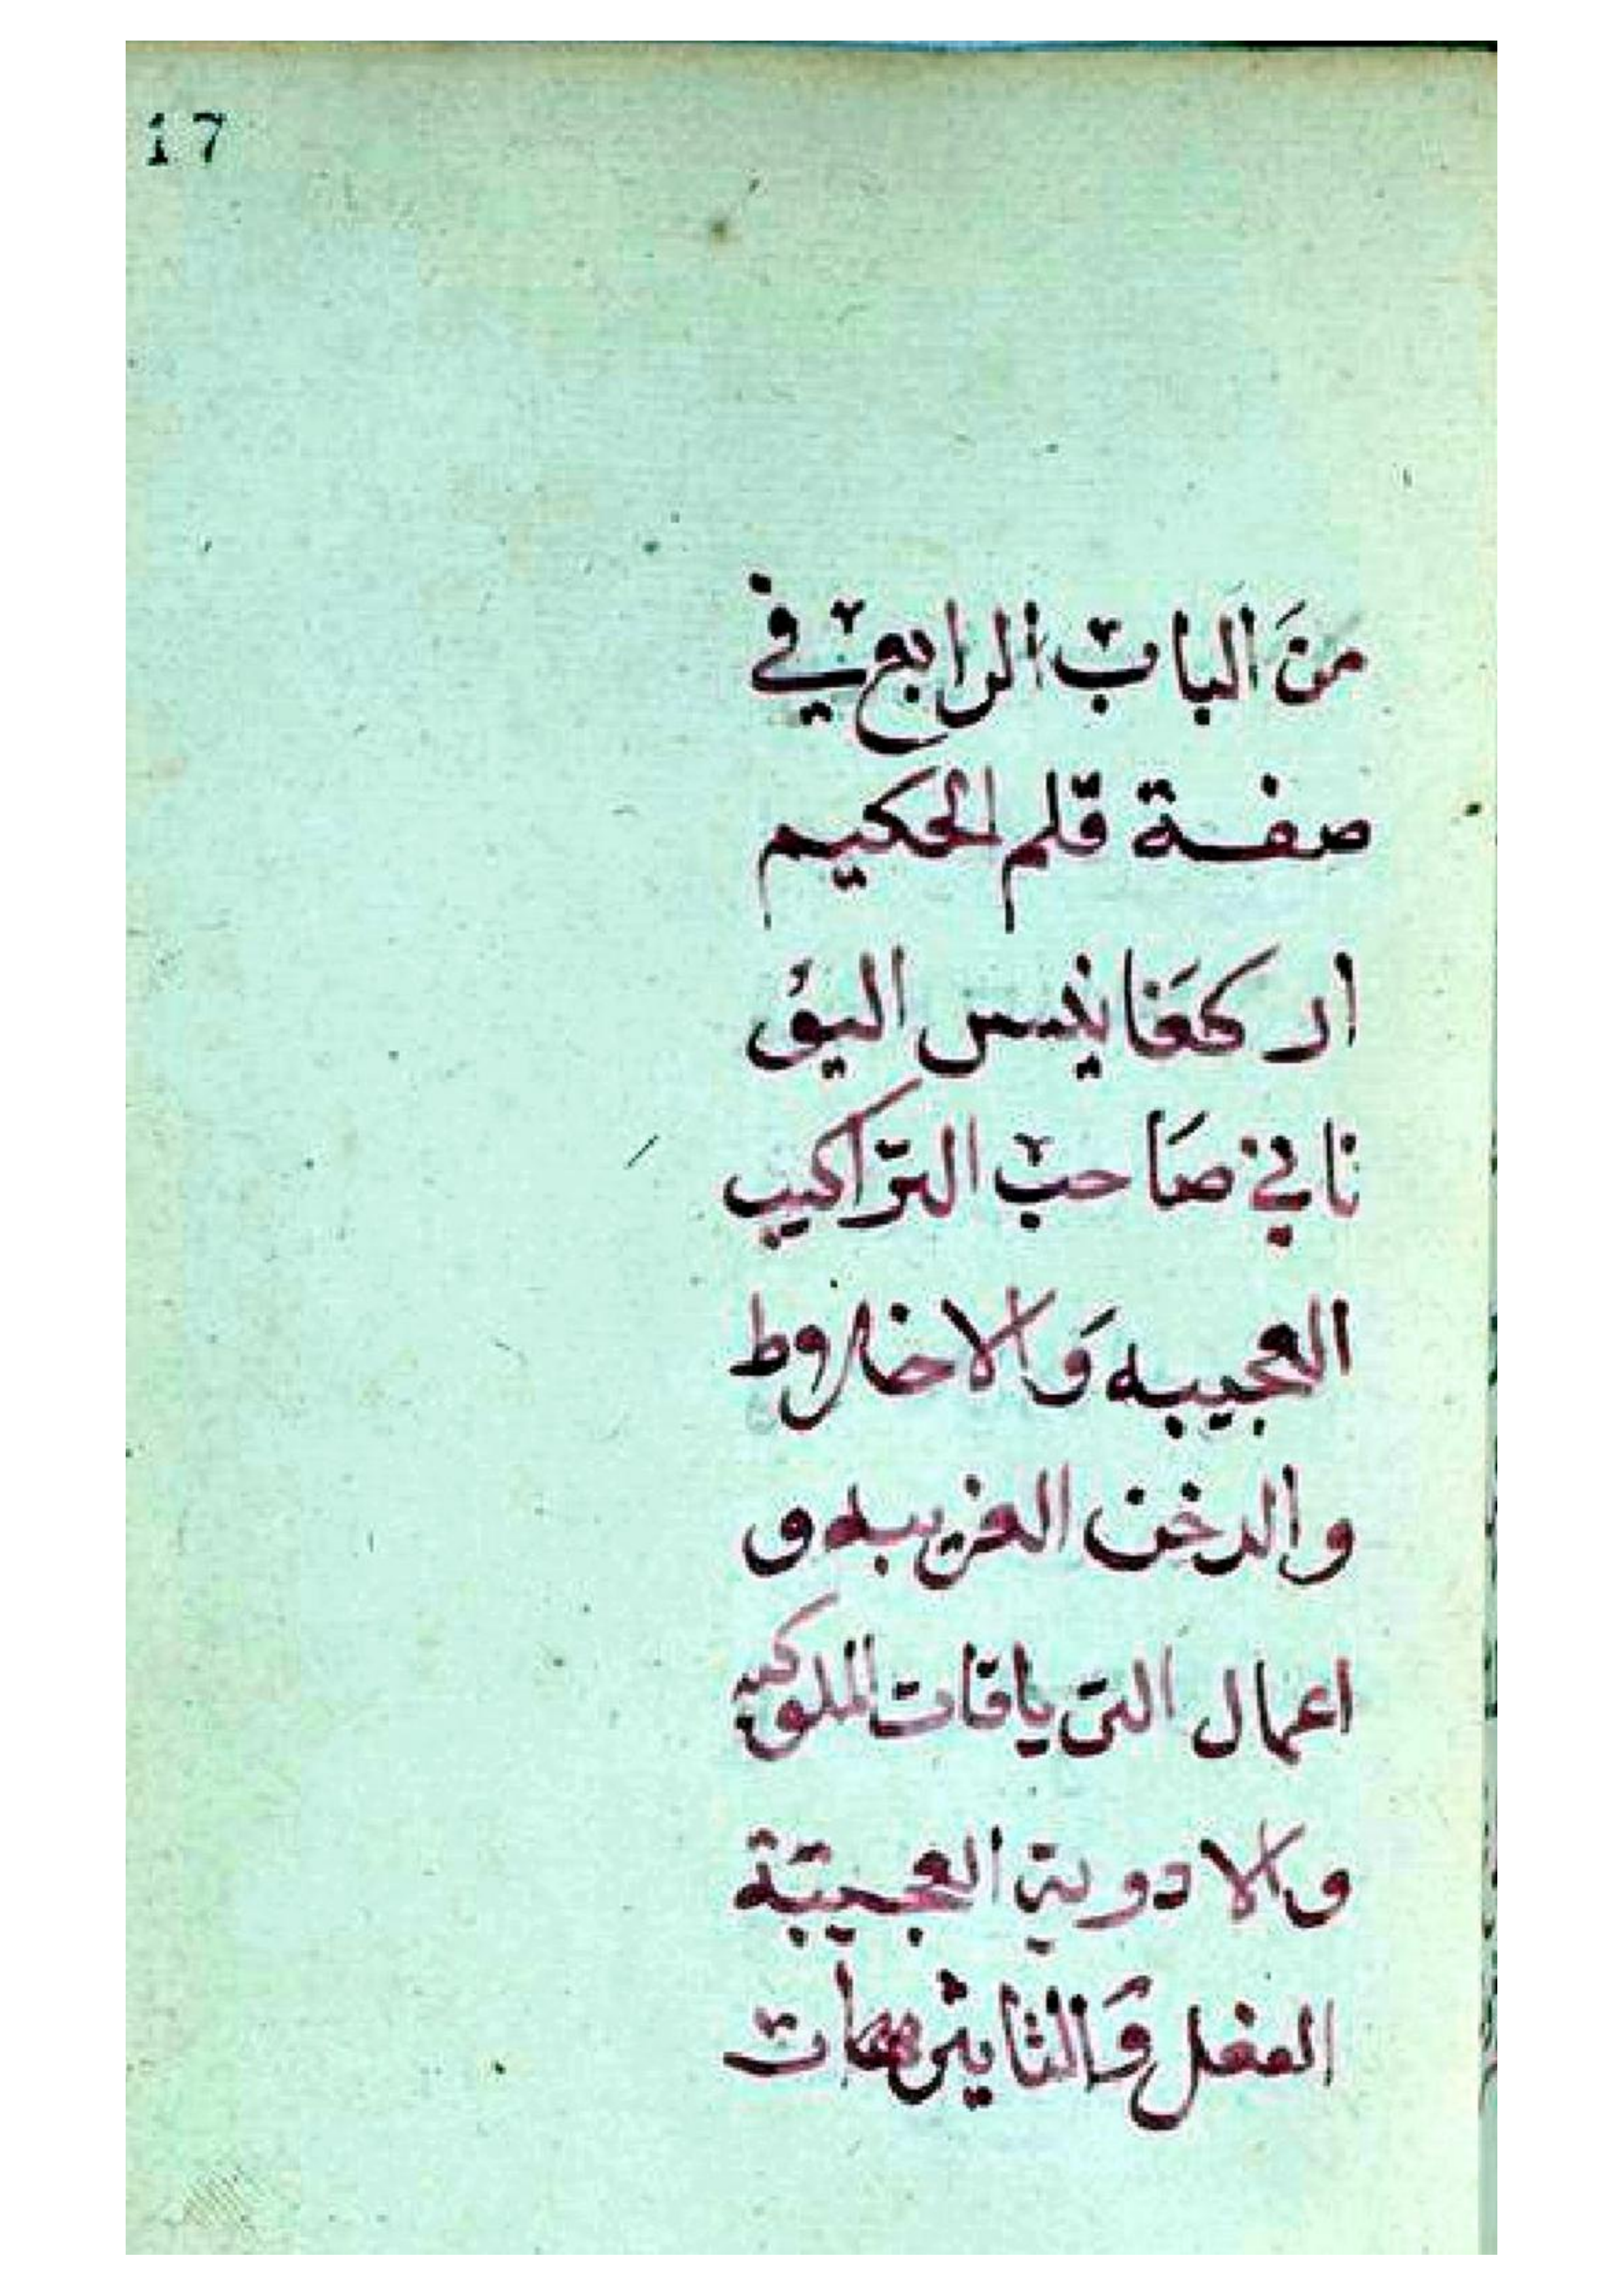 17
منَ الباب الرابع في
صفة قلم الحكيم
ار كمغانيس اليو
نا ني صَاحب التراكيب
العجيبه وَالاخلاوط
والدخن الغريبه و
اعمال الترياقات الملوكيه
والادوية العجيبة
الفعل وَالتاثير